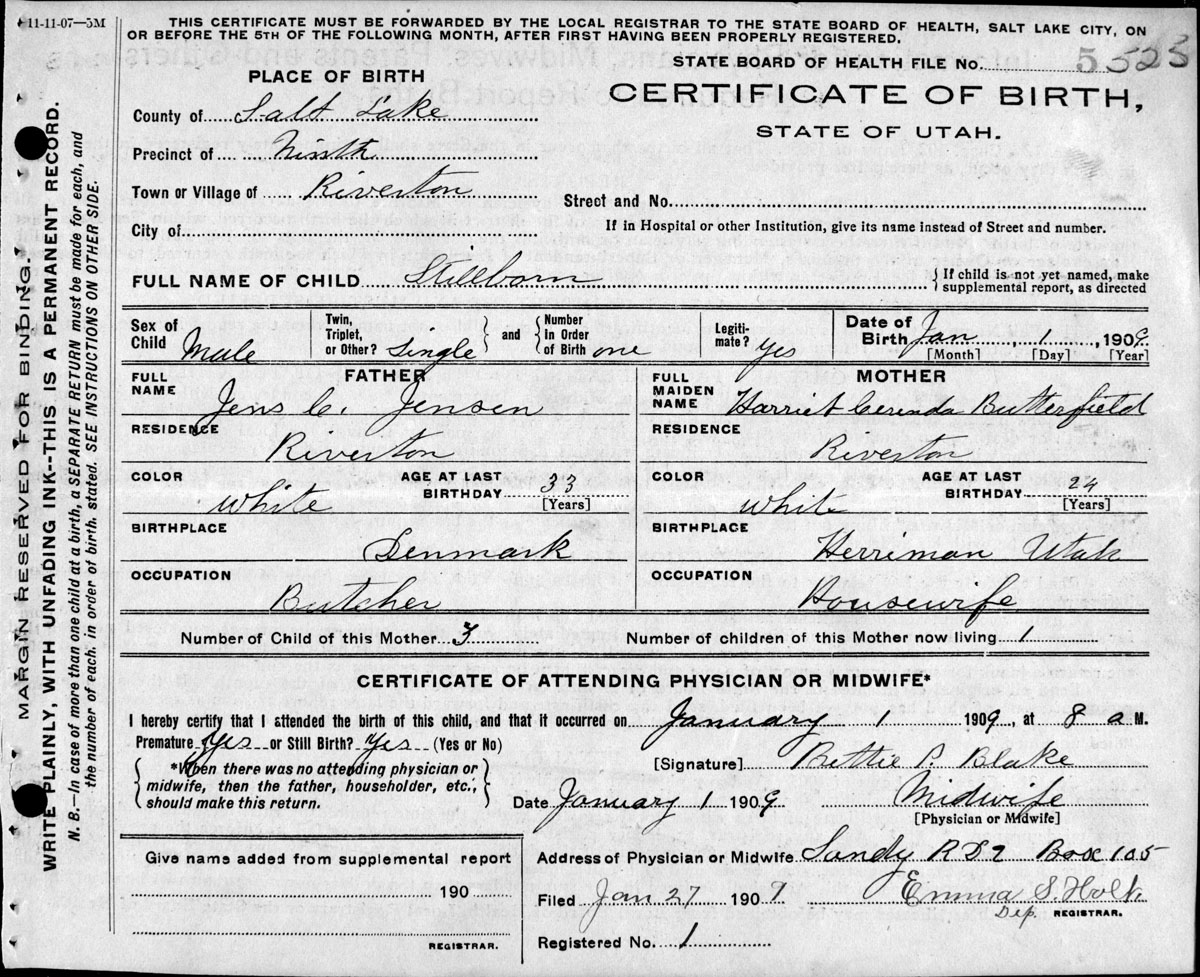 11-11-07—5M
THIS CERTIFICATE MUST BE FORWARDED BY THE LOCAL REGISTRAR TO THE STATE BOARD OF HEALTH, SALT LAKE CITY, ON
OR BEFORE THE 5TH OF THE FOLLOWING MONTH, AFTER FIRST HAVING BEEN PROPERLY REGISTERED.
STATE BOARD OF HEALTH FILE No. 5 523
PLACE OF BIRTH
CERTIFICATE OF BIRTH,
STATE OF UTAH.
County of Salt Lake
Precinct of Ninth
Town or Village of Riverton
Street and No.
City of
If in Hospital or other Institution, give its name instead of Street and number.
FULL NAME OF CHILD Stillborn
{ If child is not yet named, make
supplemental report, as directed
Sex of Child Male
Twin, Triplet, or Other? Single } and { Number in Order of Birth one
Legiti-mate? yes
Date of Birth Jan, 1, 1909.
[Month] [Day] [Year]
FATHER
FULL NAME Jens C. Jensen
RESIDENCE Riverton
COLOR White
AGE AT LAST BIRTHDAY 33
[Years]
BIRTHPLACE Denmark
OCCUPATION Butcher
MOTHER
FULL MAIDEN NAME Harriet Cerinda Butterfield
RESIDENCE Riverton
COLOR White
AGE AT LAST BIRTHDAY 24
[Years]
BIRTHPLACE Herriman Utah
OCCUPATION Housewife
Number of Child of this Mother 3
Number of children of this Mother now living 1
CERTIFICATE OF ATTENDING PHYSICIAN OR MIDWIFE*
I hereby certify that I attended the birth of this child, and that it occurred on January 1 1909, at 8 a M.
Premature Yes or Still Birth? Yes (Yes or No)
{ *When there was no attending physician or
midwife, then the father, householder, etc.,
should make this return. }
[Signature] Bettie P. Blake
Date January 1 1909
Midwife
[Physician or Midwife]
Give name added from supplemental report
190
REGISTRAR.
Address of Physician or Midwife Sandy R D 2 Box 105
Filed Jan 27 1909
Emma S. Holt
Dep. REGISTRAR.
Registered No. 1
MARGIN RESERVED FOR BINDING
WRITE PLAINLY, WITH UNFADING INK--THIS IS A PERMANENT RECORD.
N. B.—In case of more than one child at a birth, a SEPARATE RETURN must be made for each, and
the number of each, in order of birth, stated. SEE INSTRUCTIONS ON OTHER SIDE.